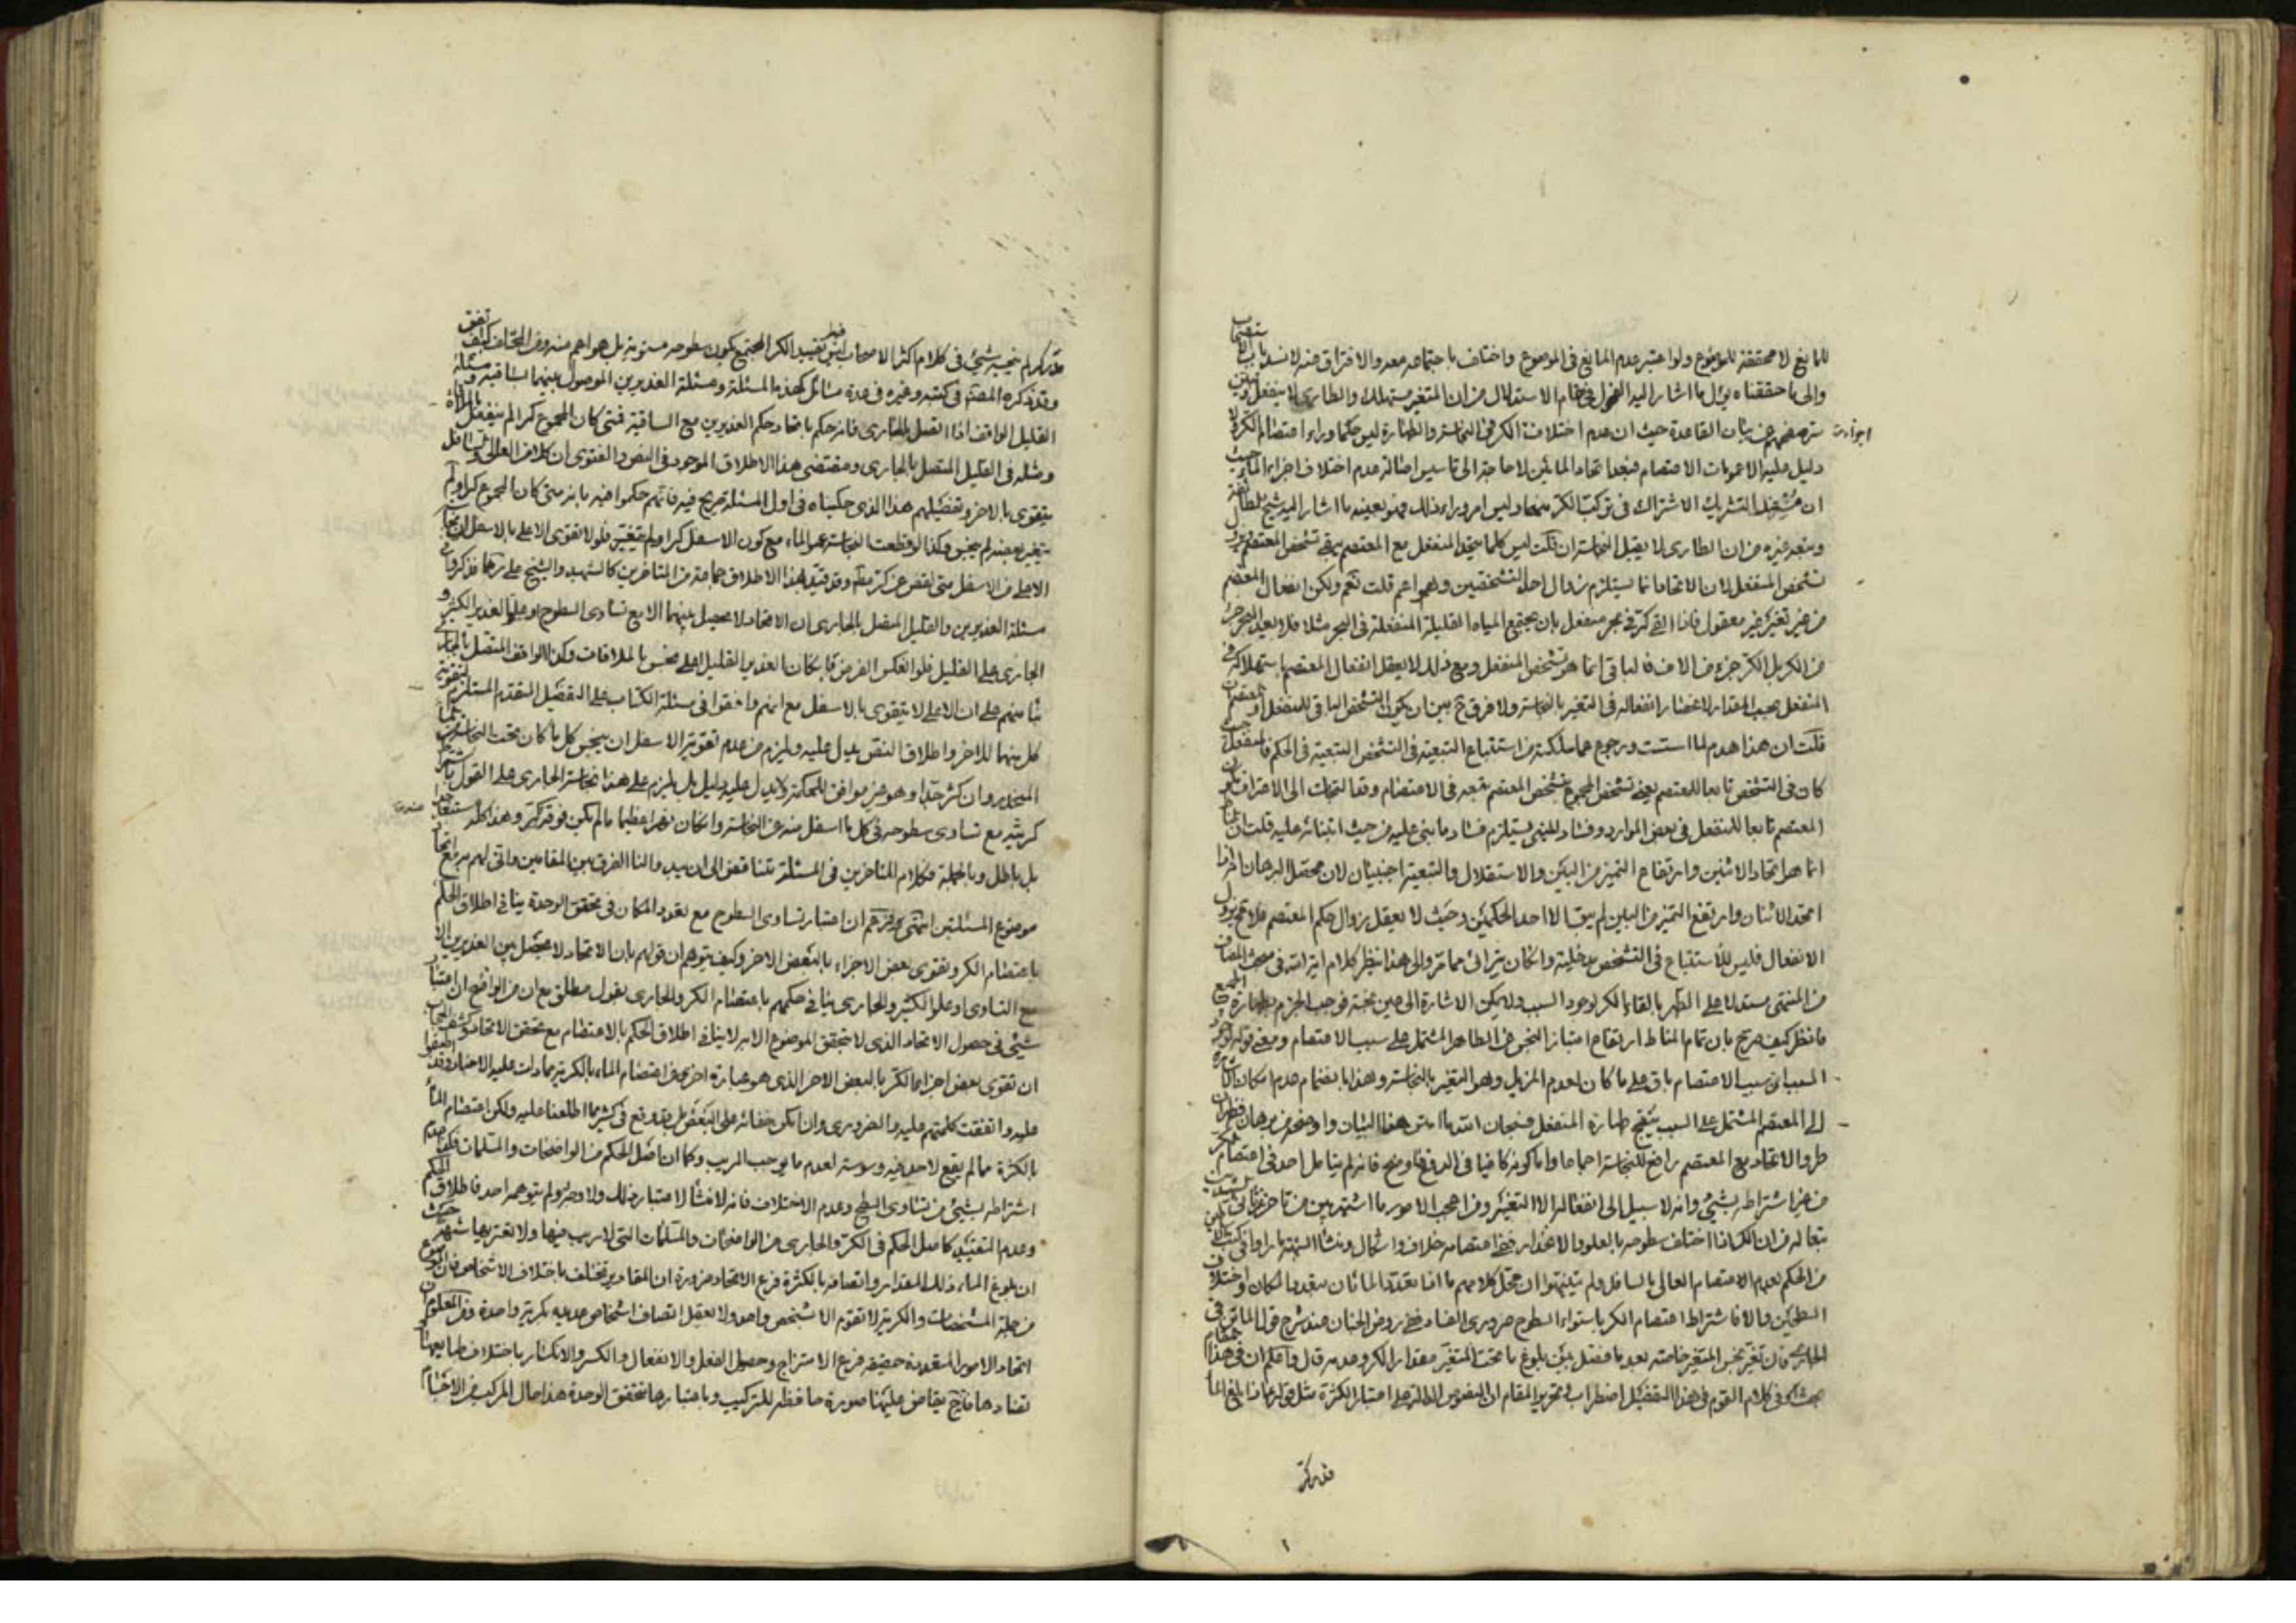 للمانع لا محققة للموضوع ولو اعتبر عدم المانع في الموضوع واختلف باجتماعه معه والافتراق عنه لانسد باب الاستصحاب
والى ما حققناه يؤل ما اشار اليه في مقام الاستدلال من ان المتغير مستهلك والطارى لا ينفعل
في بيان القاعدة حيث ان عدم اختلاف الكر في النجاسة والطهارة ليس حكما وراء اعتصام الكر لا
دليل عليه الا عمومات الاعتصام فبعد اتحاد المائين لا حاجة الى تاسيس اصالة عدم اختلاف اجزاء الماء حيث
ان التشريك الاشتراك في تركب الكر منهما وليس امر وراء ذلك فهو بعينه ما اشار اليه شيخ الطائفة
وتبعه غيره من ان الطارى لا يقبل النجاسة ان قلت ليس كلما يتحد المنفعل مع المعتصم يبقى تشخص المعتصم
تشخص المنفعل لان الاتحاد انما يستلزم زوال احد التشخصين وهو اعم قلت نعم ولكن انفعال المعتصم
من غير تغير غير معقول فاذا القى كر في بحر منفعل بان يجتمع المياه القليلة المنفعلة في البحر مثلا فلا يعد البحر جزء
من الكر بل الكر جزء من الاف فالباقي انما هو تشخص المنفعل ومع ذلك لا يعقل انفعال المعتصم باستهلاكه في
المنفعل بحسب المقدار لانحصار انفعاله في التغير بالنجاسة ولا فرق ح بين ان يكون التشخص الباقي للمنفعل او للمعتصم
قلت ان هذا هدم لما اسست ورجوع عما سلكته من استتباع التبعية في التشخص التبعية في الحكم فالمنفعل
كان في التشخص تابعا للمعتصم يعنى تشخص المجموع تشخص المعتصم تبعه في الاعتصام وقد التجأت الى الاعتراف بكون
المعتصم تابعا للمنفعل في بعض الموارد وفساد المبنى يستلزم فساد ما بني عليه من حيث ابتنائه عليه قلت ان
انما هو اتحاد الاثنين وارتفاع التميز من البين والاستقلال والتبعية اجنبيان لان محصل البرهان اذا
اتحد الاثنان وارتفع التميز من البين لم يبق الا احد الحكمين وحيث لا يعقل زوال حكم المعتصم فلا محيص عن زوال
الانفعال فليس للاستتباع في التشخص مدخلية وان كان يترائى مما مر والى هذا ينظر كلام اية الله في مبحث المضاف
من المنتهى مستدلا على الطهر بالقاء الكر لوجود السبب ولا يمكن الاشارة الى عين نجسة فوجب الجزم بطهارة الجميع
فانظر كيف صرح بان تمام المناط ارتفاع امتياز النجس عن الطاهر المشتمل على سبب الاعتصام ومعنى قوله لوجود
السبب ان سبب الاعتصام باق على ما كان لعدم المزيل وهو التغير بالنجاسة وهذا بانضمام عدم امكان الاشارة
الى المعتصم المشتمل على السبب ينتج طهارة المنفعل فسبحان الله ما امتن هذا البيان واوضحه من برهان فظهر ان
طرو الاتحاد مع المعتصم رافع للنجاسة اجماعا واما كونه كافيا في الدفع فاوضح فانه لم يتامل احد في اعتصام الكر
من غير اشتراطه بشيئ وانه لا سبيل الى انفعاله الا التغير ومن اعجب الامور ما اشتهر بين من تاخر عن الشهيد
تبعا له من ان الكر اذا اختلف سطوحه بالعلو والانحدار ففي اعتصامه خلاف واشكال ومنشأ الشبهة ما راوا في كتب
من الحكم بعدم الاعتصام العالى بالسافل ولم يتنبهوا ان محل كلامهم ما اذا تعدد المائان بتعدد المكان واختلاف
السطحين والا فاشتراط اعتصام الكر باستواء السطوح ضرورى الفساد ففي روض الجنان عند شرح قول الماتن في
الجارى فان تغير نجس المتغير خاصة بعد ما فصل بين بلوغ ما تحت المتغير مقدار الكر وعدمه قال واعلم ان في هذا المقام
بحثا في كلام القوم في هذا التفصيل اضطراب وتحرير المقام ان النصوص الدالة على اعتبار الكثرة مثل قوله اذا بلغ الماء
قدر كر
قدر كر لم ينجسه شيئ في كلام اكثر الاصحاب ليس فيه تقييد الكر المجتمع بكون سطوحه مستوية بل هو اعم منه ومن المختلف كيف اتفق
وقد ذكره المصنف في كتبه وغيره في عدة مسائل كهذه المسئلة ومسئلة الغديرين الموصول بينهما بساقية ومسئلة
القليل الواقف اذا اتصل بالجارى فانه حكم باتحاد حكم الغديرين مع الساقية فمتى كان المجموع كرا لم ينفعل بالملاقاة
ومثله في القليل المتصل بالجارى ومقتضى هذا الاطلاق الموجود في النص والفتوى ان كلا من العالى والسافل
يتقوى بالاخر وتفصيلهم هذا الذى حكيناه في اول المسئلة صريح فيه فانهم حكموا فيه بانه متى كان المجموع كرا ولم
يتغير بعضه لم ينجس وكذا لو قطعت النجاسة عمود الماء مع كون الاسفل كرا ولم يتغير فلولا تقوى الاعلى بالاسفل لنجس
الاعلى من الاسفل متى نقص عن كر مط وقد قيد هذا الاطلاق جماعة من المتاخرين كالشهيد والشيخ على رحمهما فذكروا في
مسئلة الغديرين والقليل المتصل بالجارى ان الاتحاد لا يحصل بينهما الا مع تساوى السطوح او علو الغدير الكثير و
الجارى على القليل فلو انعكس الفرض بان كان الغدير القليل اعلى نجس بالملاقات وكذا الواقف المتصل بالجارى
بناء منهم على ان الاعلى لا يتقوى بالاسفل مع انهم وافقوا في مسئلة الكتاب على التفصيل المتقدم المستلزم لتقوية
كل منهما للاخر واطلاق النص يدل عليه ويلزم من عدم تقوية الاسفل ان ينجس كل ما كان تحت النجاسة من الماء
المنحدر وان كثر جدا وهو غير موافق للحكمة ولا يدل عليه دليل بل يلزم على هذا نجاسة الجارى على القول باشتراط
كريته مع تساوى سطوحه في كل ما اسفل منه عن النجاسة وان كان نهرا عظيما ما لم يكن فوقه كر وهذا كله مستبعد جدا
بل باطل وبالجملة فكلام المتاخرين في المسئلة متناقض الى ان يبدوا لنا الفرق بين المقامين وانى لهم به مع اتحاد
موضوع المسئلتين انتهى فزعم ان اعتبار تساوى السطوح مع تعدد المكان في تحقق الوحدة ينافى اطلاق الحكم
باعتصام الكر وتقوى بعض الاجزاء بالبعض الاخر وكيف يتوهم ان قولهم بان الاتحاد لا يحصل بين الغديرين الا
مع التساوى او علو الكثير والجارى ينافى حكمهم باعتصام الكر والجارى بقول مطلق مع ان من الواضح ان اعتبار
شيئ في حصول الاتحاد الذى لا يتحقق الموضوع الا به لا ينافى اطلاق الحكم بالاعتصام مع تحقق الاتحاد
ان تقوى بعض اجزاء الكر بالبعض الاخر الذى هو عبارة اخرى عن اعتصام الماء بالكرية مما دلت عليه الاخبار وقد اتفقوا
عليه واتفقت كلمتهم عليه بل وقع في كثير مما اطلعنا عليه ولكن اعتصام الماء
بالكثرة مما لم يقع لاحد فيه وسوسة لعدم ما يوجب الريب وكما ان اصل الحكم من الواضحات والمسلمات فكذا عدم
اشتراطه بشيئ من تساوى السطح وعدم الاختلاف فانه لا منشأ لاعتبار ذلك ولا وجه ولم يتوهمه احد فاطلاق الحكم
وعدم التقييد كاصل الحكم في الكر والجارى من الواضحات والمسلمات التى لا ريب فيها ولا تعتريها شبهة حيث
ان بلوغ الماء ذلك المقدار واتصافه بالكثرة فرع الاتحاد ضرورة ان المقادير تختلف باختلاف الاشخاص فان
من جملة المشخصات والكرية لا تقوم الا بشخص واحد ولا يعقل اتصاف اشخاص عديدة بكرية واحدة ومن المعلوم ان
اتحاد الامور المتعددة حقيقة فرع الامتزاج وحصول الفعل والانفعال والكسر والانكسار باختلاف طبايعها
تضادها فح يفاض عليها صورة حافظة للتركيب وباعتبارها تتحقق الوحدة هذا حال المركب من الاجسام